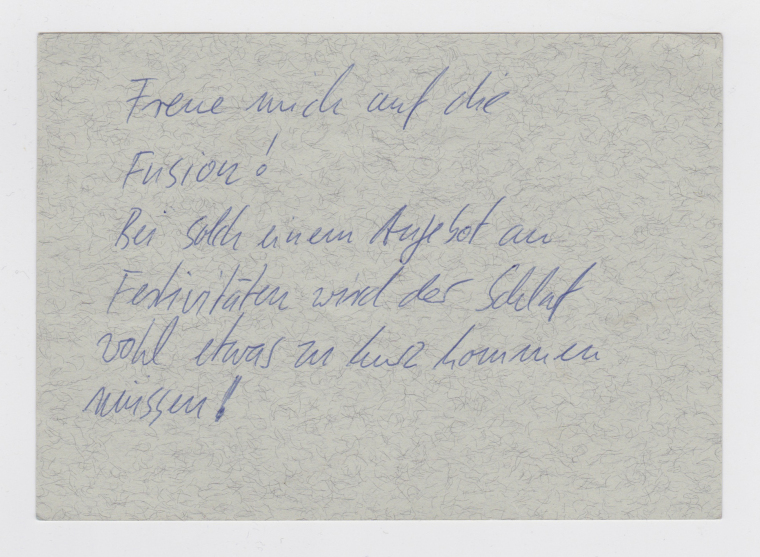 Freue mich auf die
Fusion!
Bei solch einem Angebot an
Festivitäten wird der Schlaf
wohl etwas zu kurz kommen
müssen!